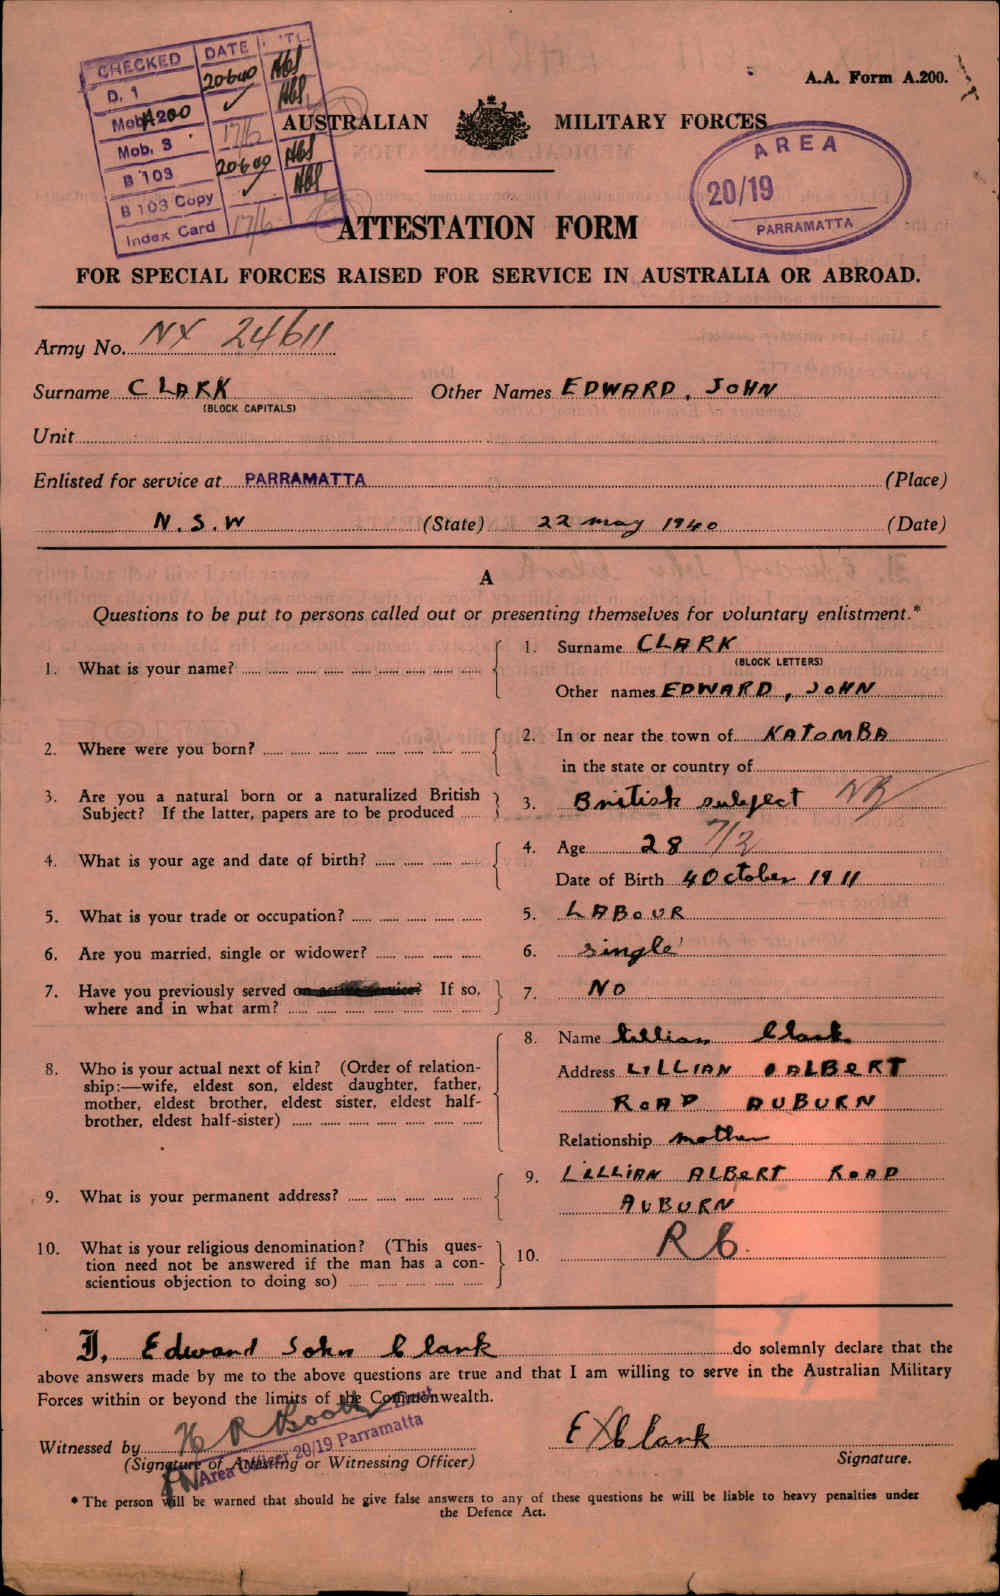 CHECKED DATE INTL.
D. 1 20640 HBS
Mob A200 ✓ HBS
Mob. 3 17/6
B 103 20640 HBS
B 103 Copy ✓ HBS
Index Card 17/6
A.A. Form A.200.
AUSTRALIAN MILITARY FORCES
AREA
20/19
PARRAMATTA
ATTESTATION FORM
FOR SPECIAL FORCES RAISED FOR SERVICE IN AUSTRALIA OR ABROAD.
Army No. NX 24611
Surname CLARK Other Names EDWARD, JOHN
(BLOCK CAPITALS)
Unit
Enlisted for service at PARRAMATTA (Place)
N.S.W (State) 22 may 1940 (Date)
A
Questions to be put to persons called out or presenting themselves for voluntary enlistment.*
1. What is your name? 1. Surname CLARK
(BLOCK LETTERS)
Other names EDWARD, JOHN
2. Where were you born? 2. In or near the town of KATOMBA
in the state or country of
3. Are you a natural born or a naturalized British
Subject? If the latter, papers are to be produced 3. British subject
4. What is your age and date of birth? 4. Age 28 7/12
Date of Birth 4 October 1911
5. What is your trade or occupation? 5. LABOUR
6. Are you married, single or widower? 6. single
7. Have you previously served on active service? If so,
where and in what arm? 7. NO
8. Who is your actual next of kin? (Order of relation-
ship:—wife, eldest son, eldest daughter, father,
mother, eldest brother, eldest sister, eldest half-
brother, eldest half-sister)
8. Name Lillian Clark
Address LILLIAN ALBERT
ROAD AUBURN
Relationship mother
9. What is your permanent address? 9. LILLIAN ALBERT ROAD
AUBURN
10. What is your religious denomination? (This ques-
tion need not be answered if the man has a con-
scientious objection to doing so) 10. RC.
I, Edward John Clark do solemnly declare that the
above answers made by me to the above questions are true and that I am willing to serve in the Australian Military
Forces within or beyond the limits of the Commonwealth.
Witnessed by H R Booth Lieut
Area Officer 20/19 Parramatta
(Signature of Attesting or Witnessing Officer)
E J Clark
Signature.
* The person will be warned that should he give false answers to any of these questions he will be liable to heavy penalties under
the Defence Act.